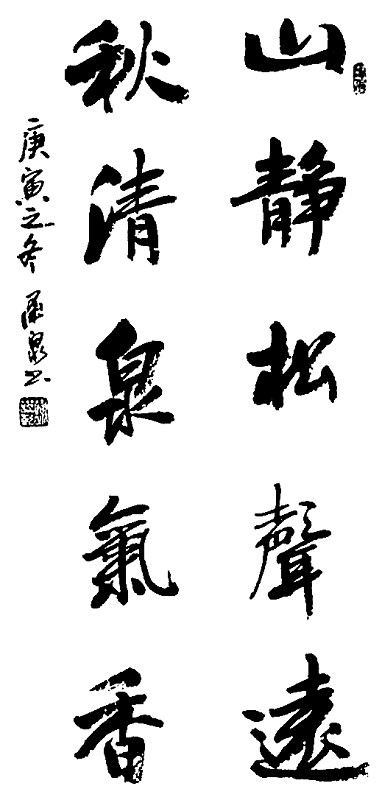 山靜松聲遠
秋清泉氣香
庚寅之冬
泉书